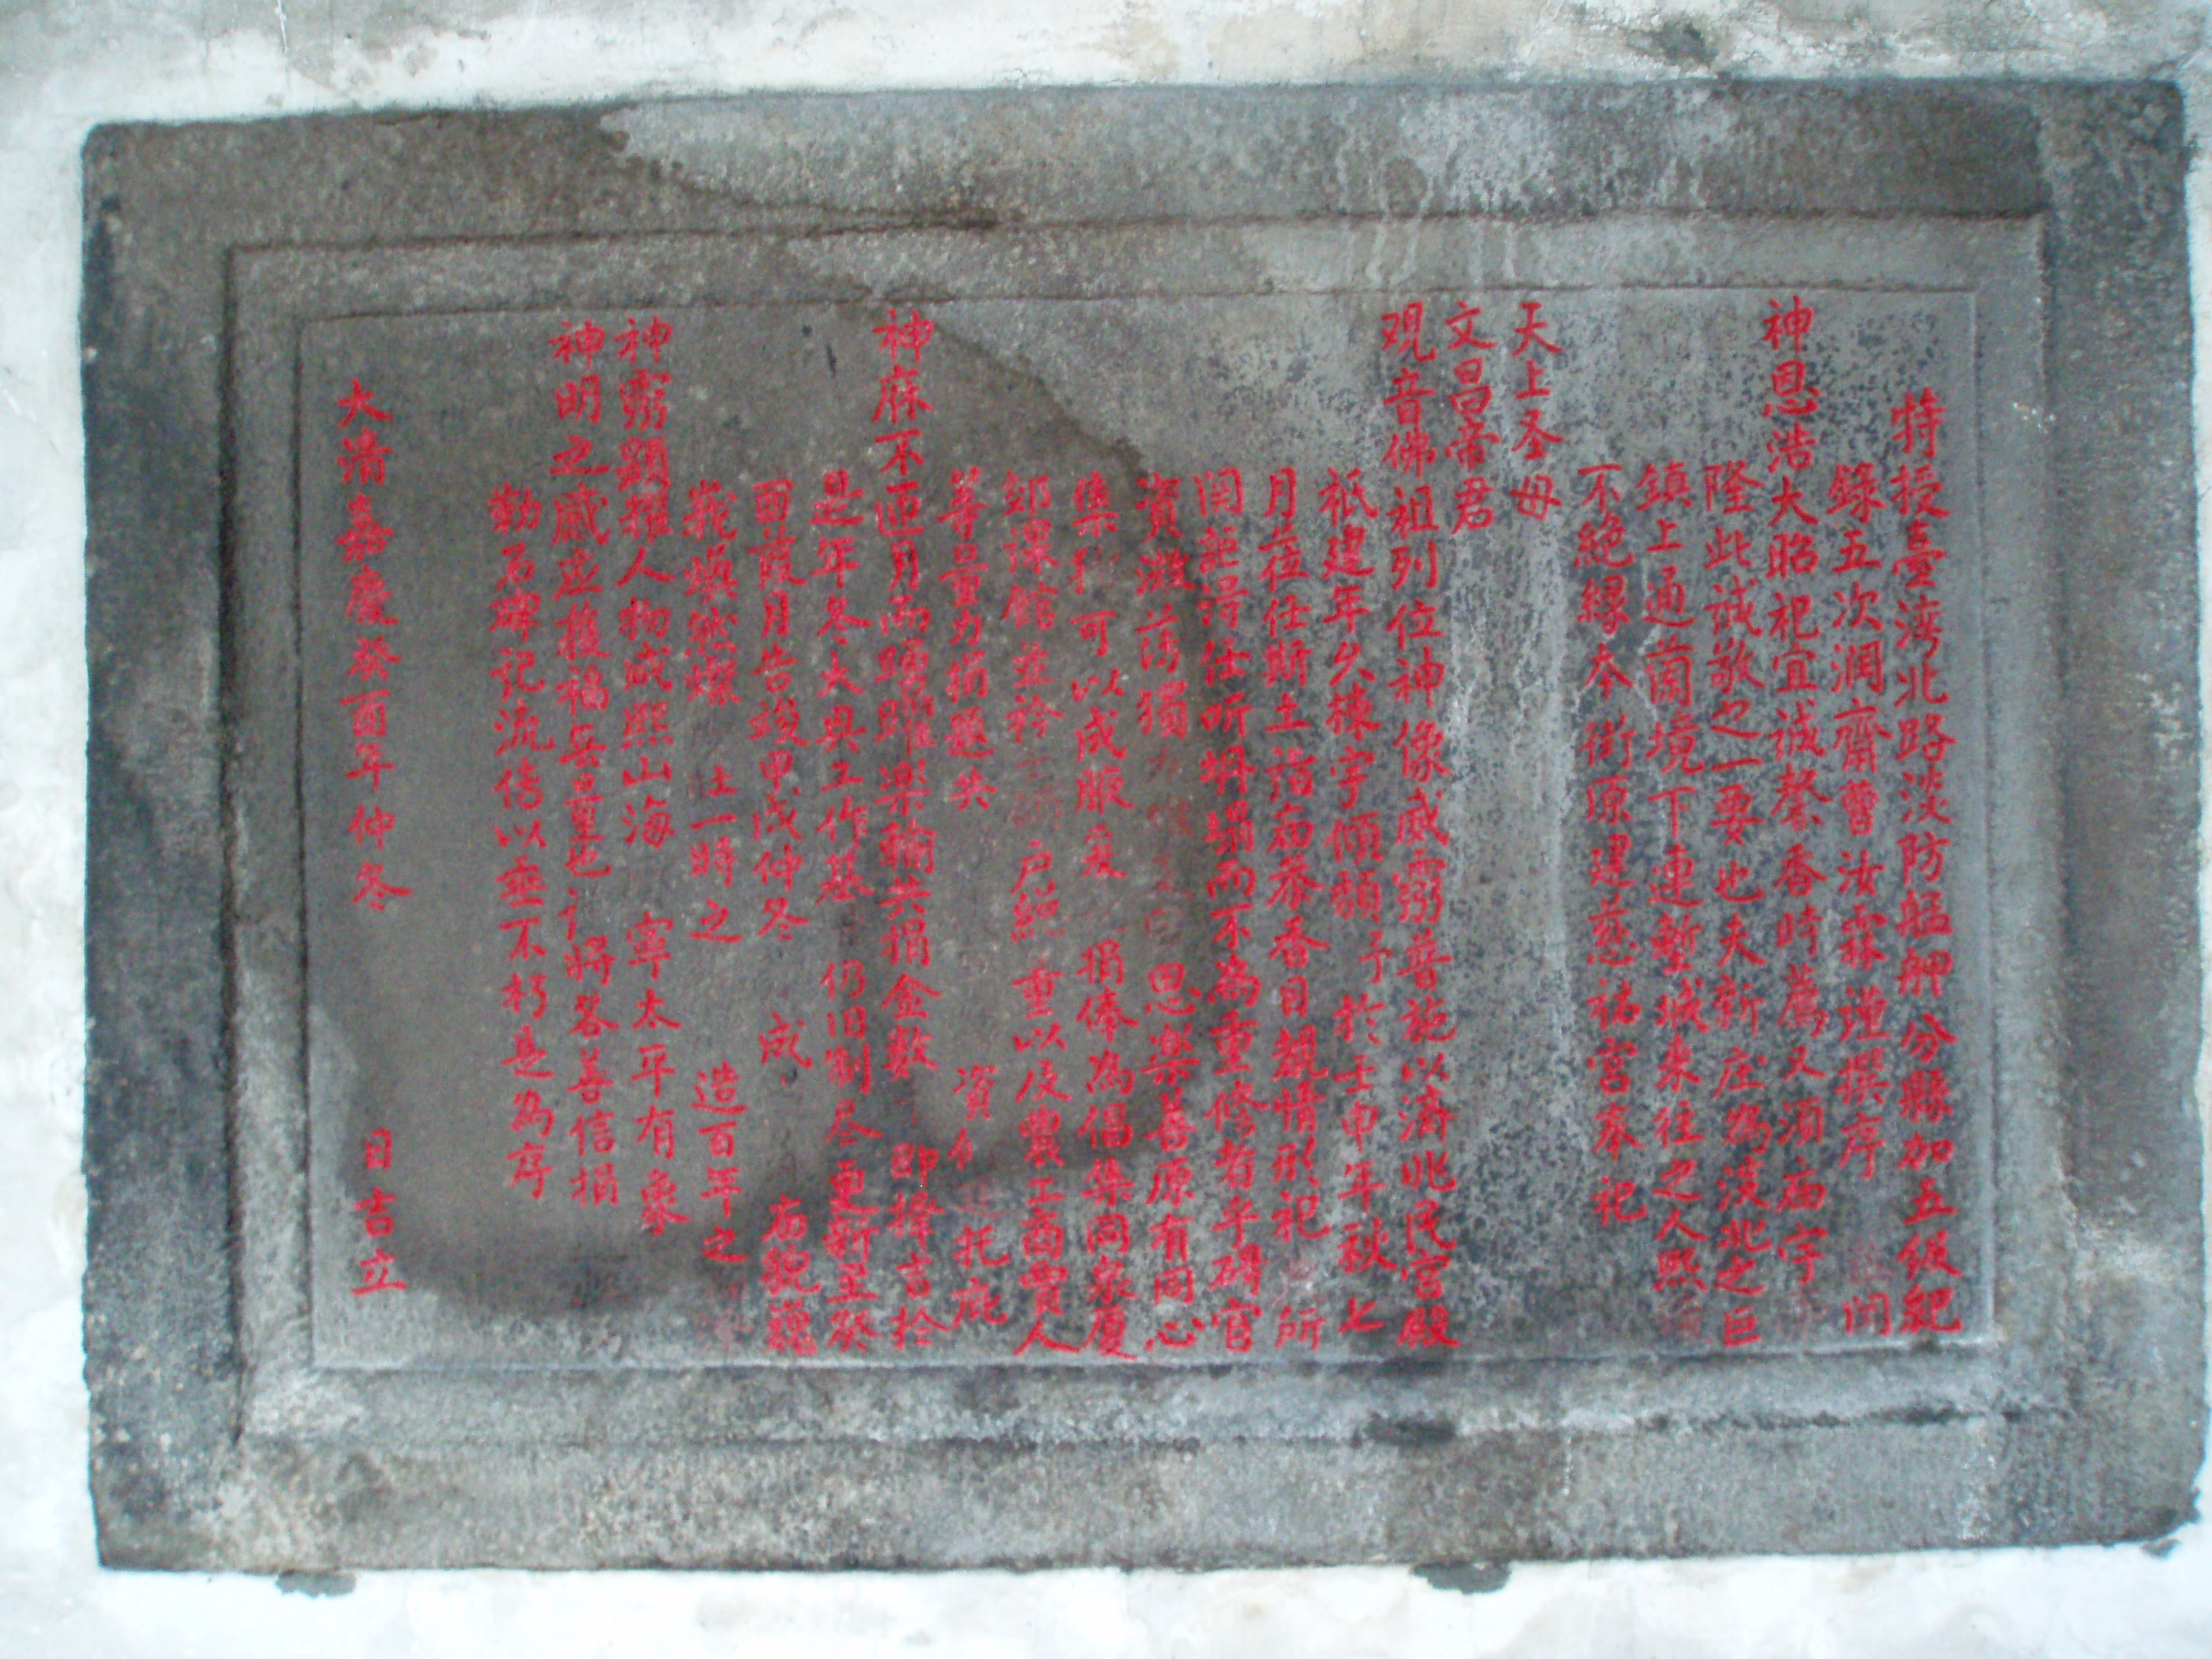 特授臺湾北路淡防艋舺分縣加五級紀
錄五次潤齋曹汝霖謹撰序 闻
神恩浩大昭祀宜诚祭香時薦又須庙宇
隆此诚敬之一要也夫新庄為淡北之巨
鎮上通蘭境下連塹城来往之人熙
不絶缘本街原建慈祐宫奉祀
天上圣母
文昌帝君
观音佛祖列位神像威灵普施以濟兆民宫殿
祇建年久棟宇傾頹予於壬申年秋七
月莅任斯土指庙恭香目覩情形祀 所
関詎得任听坍塌而不為重修者乎碍官
資澉薄獨 思樂善原有同心
集 可以成腋爰 捐俸為倡集同泉厦
郊课館並衿 户經 重以及農工商賈人
等量力捐题共 資 托庇
神庥不匝月而踴躍樂輸共捐金数 即擇吉於
是年冬大興工作基 仍旧制尽更新至癸
酉葭月告竣甲戌仲冬 成 庙貌巍
峩焕然燦 一時之 造百年之
神灵顕耀人物咸熙山海 寧太平有象
神明之感应獲福無量也 将各善信捐
勒石碑记流传以垂不朽是為序
大清嘉慶癸酉年仲冬 日吉立